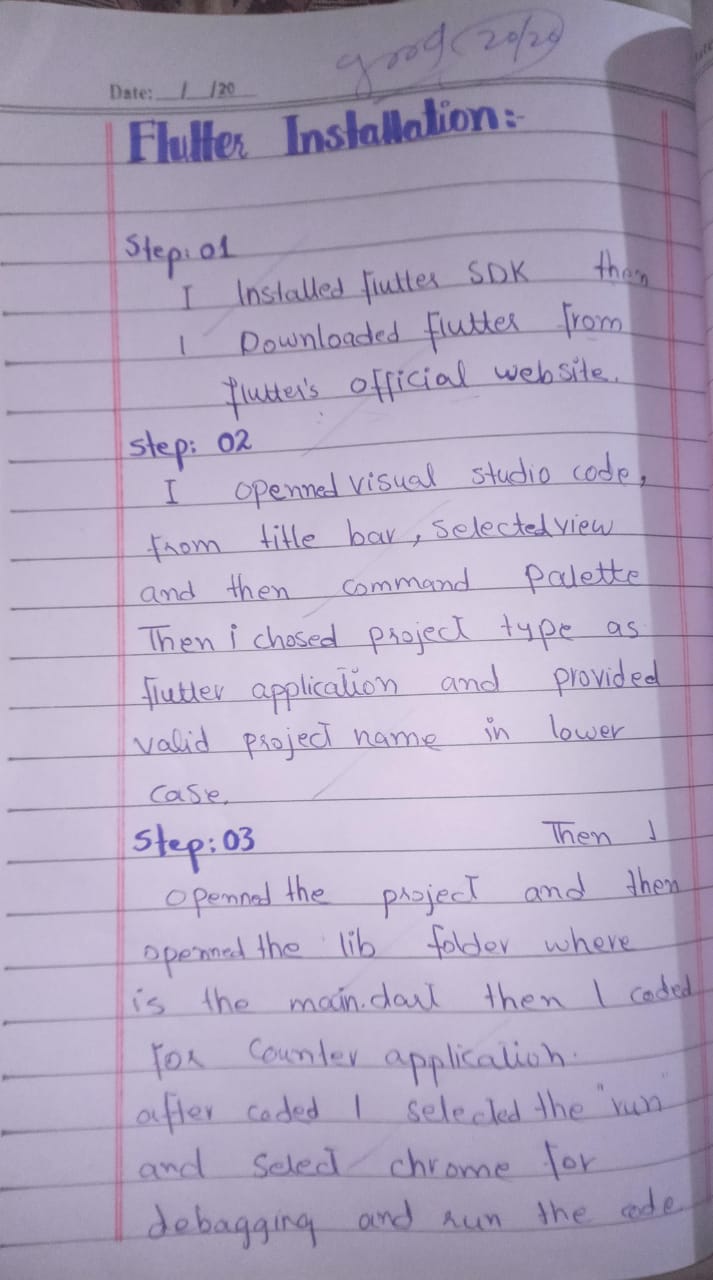 good 20/20
Date: / /20
Flutter Installation:-
Step: 01
I Installed flutter SDK then
I Downloaded flutter from
flutter's official website.
Step: 02
I openned visual studio code,
from title bar, selected view
and then command Palette
Then i chosed project type as
flutter application and provided
valid project name in lower
case.
Step: 03 Then I
openned the project and then
openned the lib folder where
is the main.dart then I coded
for Counter application.
after coded I selected the "run"
and select chrome for
debagging and run the code